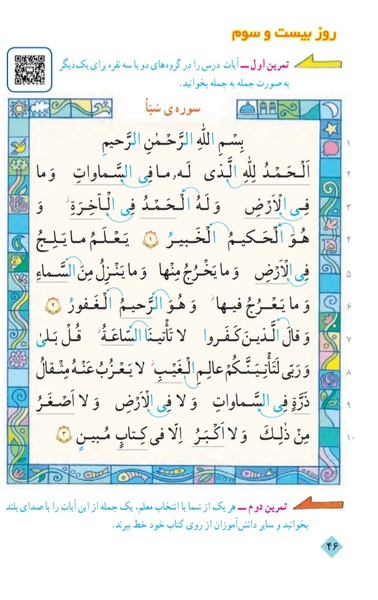 روز بیست و سوم
تمرین اول ــ آیات درس را در گروه‌های دو یا سه نفره برای یک‌دیگر
به صورت جمله به جمله بخوانید.
سوره‌ی سَبَأ
۱ بِسْمِ اللّٰهِ الرَّحْمٰنِ الرَّحیمِ
۲ اَلْحَمْدُ لِلّٰهِ الَّذی لَهُ، ما فِی السَّماواتِ وَ ما
۳ فِی الْاَرْضِ وَ لَهُ الْحَمْدُ فِی الْآخِرَةِ ۚ وَ
۴ هُوَ الْحَکیمُ الْخَبیرُ ﴿۱﴾ یَعْلَمُ ما یَلِجُ
۵ فِی الْاَرْضِ وَ ما یَخْرُجُ مِنْها وَ ما یَنْزِلُ مِنَ السَّماءِ
۶ وَ ما یَعْرُجُ فیها ۚ وَ هُوَ الرَّحیمُ الْغَفورُ ﴿۲﴾
۷ وَ قالَ الَّذینَ کَفَروا لا تَأْتینَا السّاعَةُ ۖ قُلْ بَلیٰ
۸ وَ رَبّی لَتَأْتِیَنَّکُمْ عالِمِ الْغَیْبِ ۖ لا یَعْزُبُ عَنْهُ مِثْقالُ
۹ ذَرَّةٍ فِی السَّماواتِ وَ لا فِی الْاَرْضِ وَ لا اَصْغَرُ
۱۰ مِنْ ذٰلِکَ وَ لا اَکْبَرُ اِلّا فی کِتابٍ مُبینٍ ﴿۳﴾
تمرین دوم ــ هر یک از شما با انتخاب معلم، یک جمله از این آیات را با صدای بلند
بخوانید و سایر دانش‌آموزان از روی کتاب خود خط ببرند.
۴۶